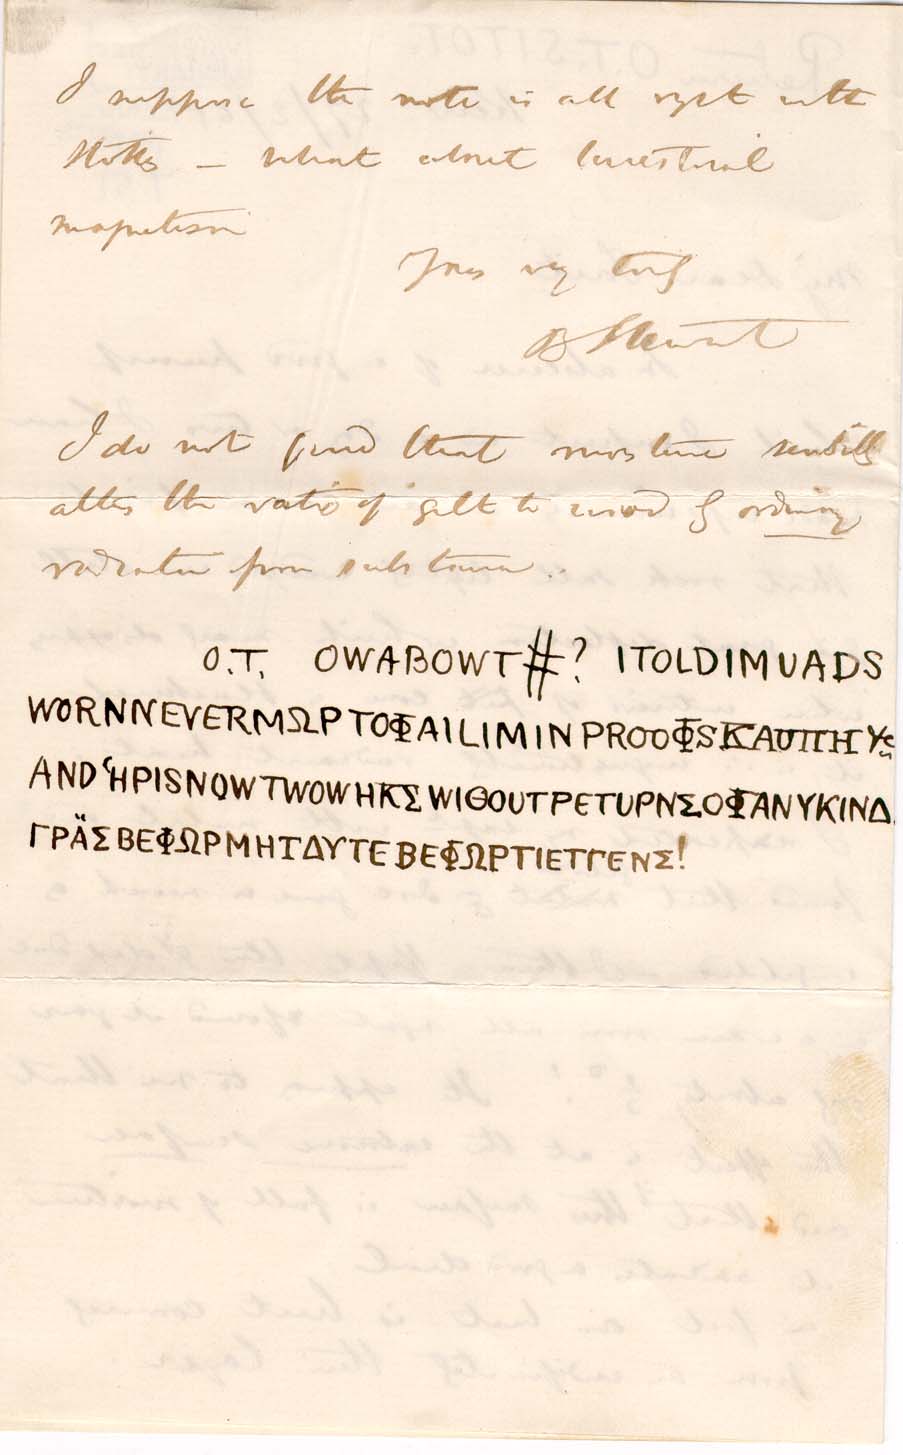 I suppose the note is all right with
Stokes – what about terrestrial
magnetism
Yours very truly
B Stewart
I do not find that moisture sensibly
alters the ratio of gilt to wood for ordinary
radiation from substance..
O.T. OWABOWT#? ITOLDIMUADS
WORNNEVERMΩΡ ΤΟΦAILIMIN PROOΦS
AND ῾ΗΡΙSNOWTWOWΗΚΣ WIΘOUTΡΕΤΥΡΝΣΟΦANYKINΔ.
ΓΡΑ̈ΣΒΕΦΩΡΜΗΤΔΥΤΕΒΕΦΩΡΤΙΕΤΓΕΝΣ!